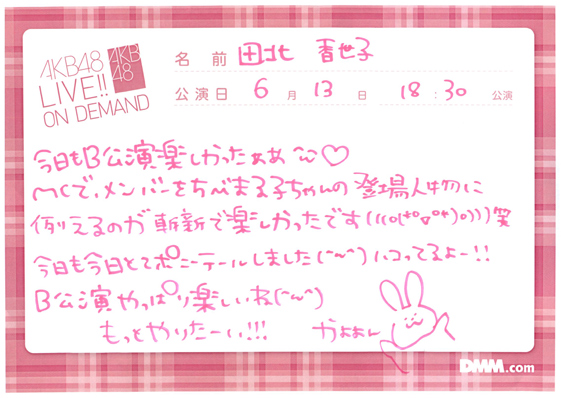 AKB48
LIVE!!
ON DEMAND
AKB
48
名 前 田北 香世子
公演日 6 月 13 日 18:30 公演
今日もB公演楽しかったぁぁ〜い♡
MCで、メンバーをちびまる子ちゃんの登場人物に
例えるのが斬新で楽しかったです(((o(*ﾟ▽ﾟ*)o)))笑
今日も今日とてポニーテールしました(^~^)ハマってるよー!!
B公演やっぱり楽しいね(^~^)
もっとやりたーい!!!
かよよん
DMM.com